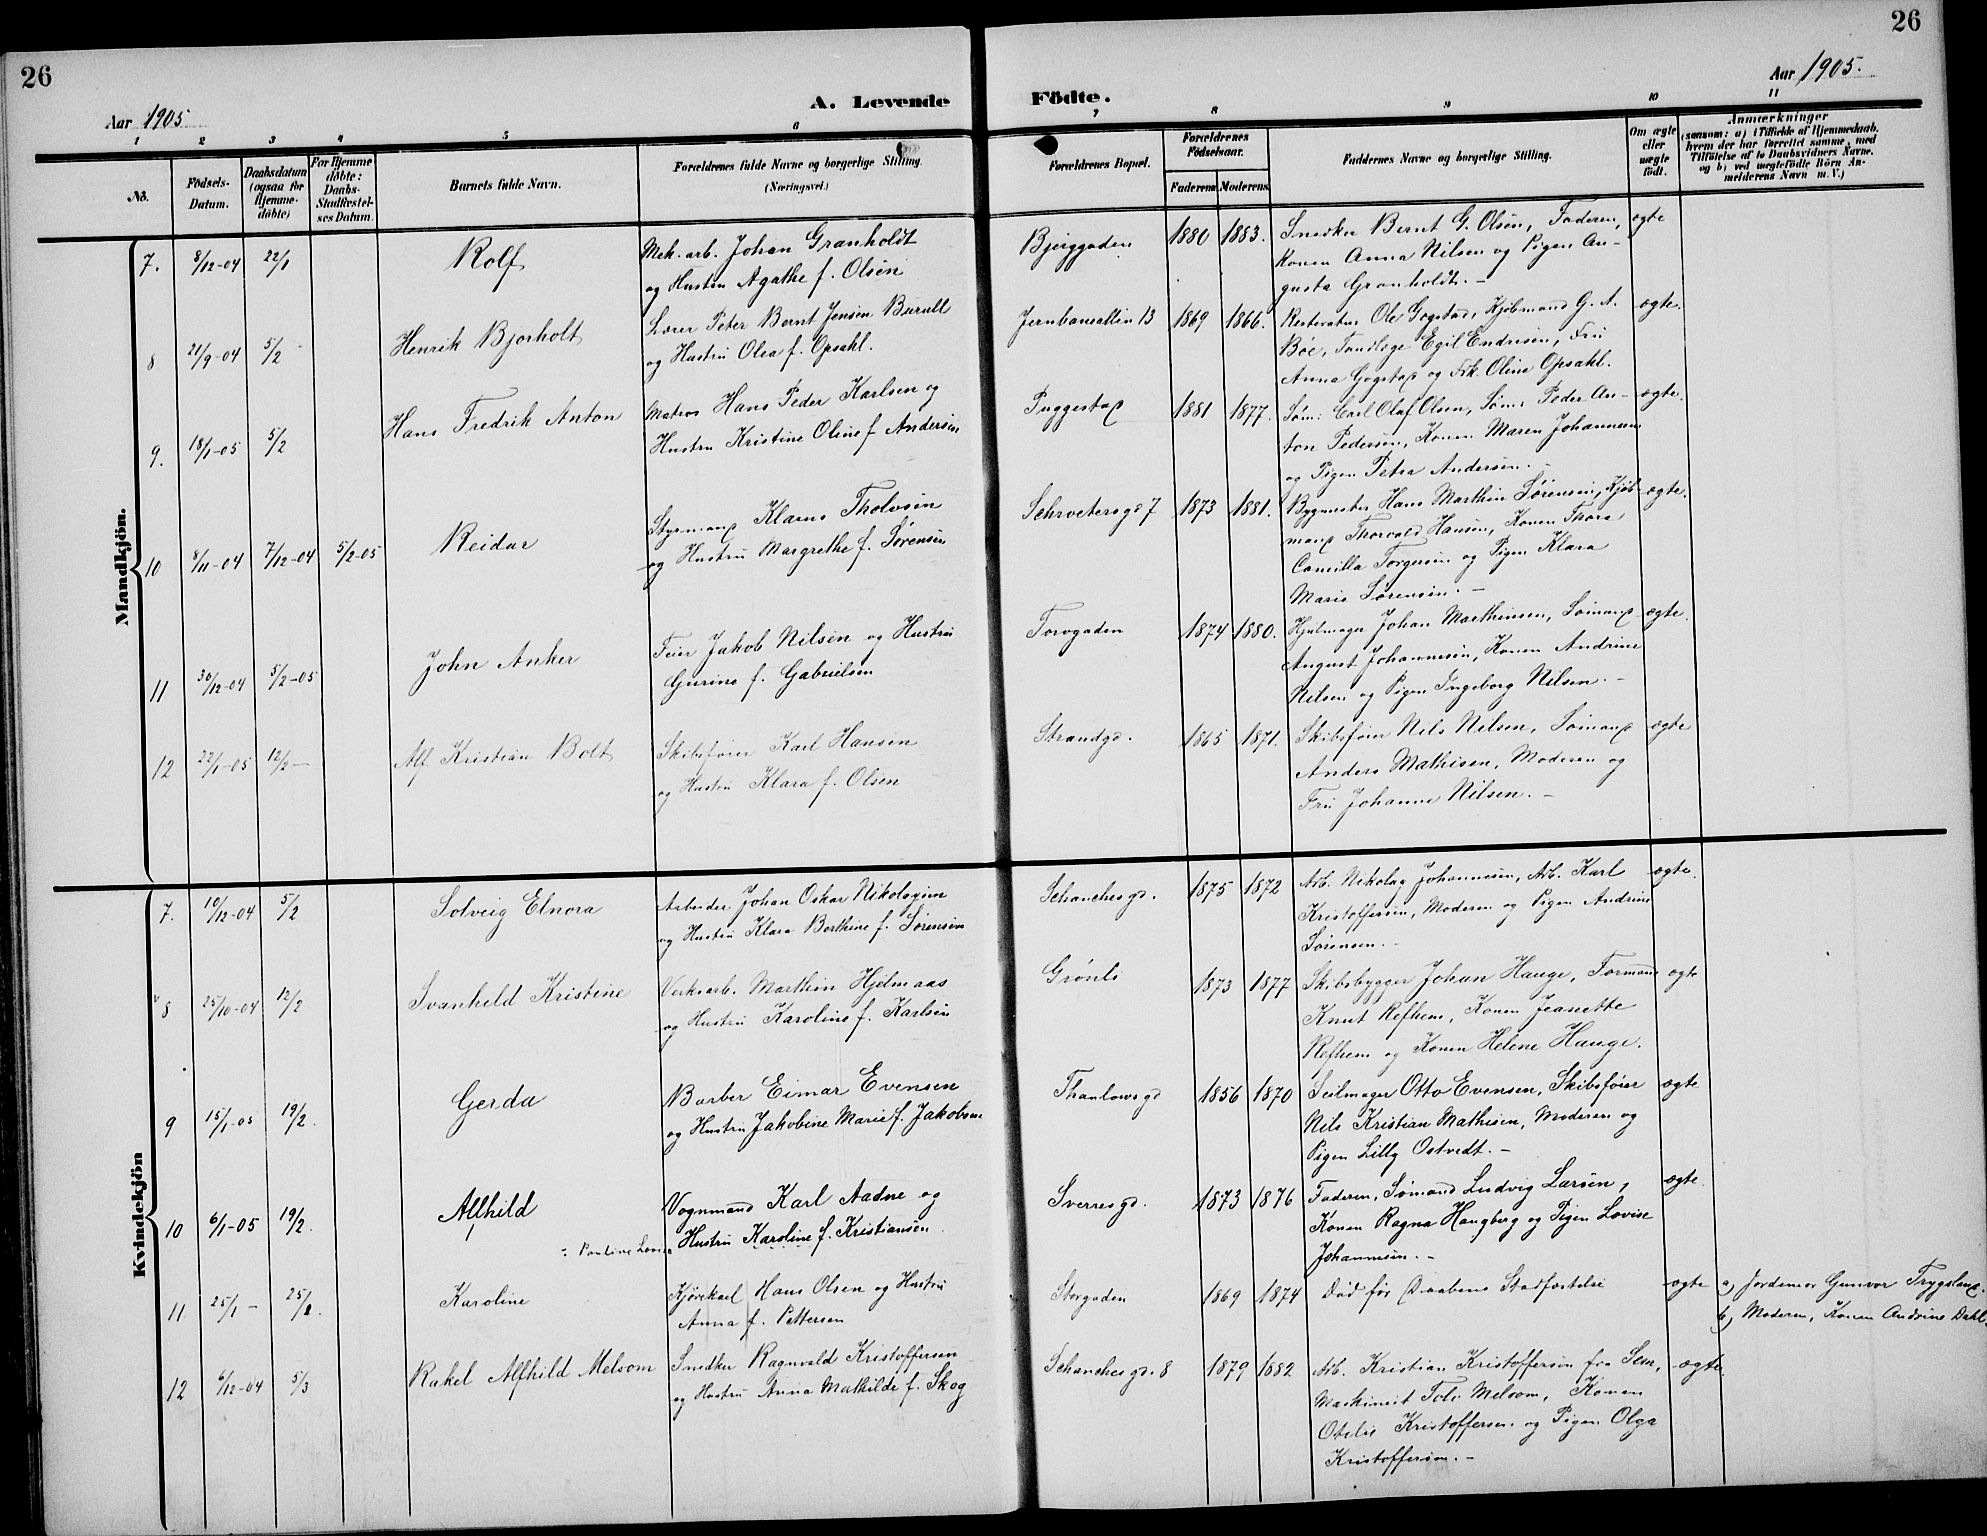 26
26
Aar 1905
A. Levende
Födte.
Aar 1905.
1 2 3 4 5 6
7 8 9 10 11
No.
Födsels-Datum.
Daabsdatum (ogsaa for Hjemme-döbte)
For Hjemme döbte: Daabs-Stadfæstel-ses Datum.
Barnets fulde Navn.
Forældrenes fulde Navne og borgerlige Stilling.
(Næringsvei.)
Forældrenes Bopæl.
Forældrenes Födselsaar.
Faderens Moderens
Faddernes Navne og borgerlige Stilling.
Om ægte eller uægte födt.
Anmærkninger
(saasom: a) i Tilfælde af Hjemmedaab, hvem der har forrettet samme, med Tilföielse af to Daabsvidners Navne, og b) ved uægtefödte Börn An-melderens Navn m. V.)
Mandkjön.
7. 8/12-04 22/1 Rolf
Mek. arb. Johan Granholdt
og Hustru Agathe f. Olsen
Bjerggaden 1880 1883.
Snedker Bernt G. Olsen, Faderen, ægte
Konen Anna Nilsen og Pigen Au-
gusta Granholdt. -
8 21/9-04 5/2 - Henrik Bjorholt
Lærer Peter Bernt Jensen Burull
og Hustru Olea f. Opsahl.
Jernbaneallin 13 1869 1866.
Restauratør Ole Gogstad, Kjøbmand G. A. ægte.
Bøe, Tandlæge Egil Endresen, Fru
Anna Gogstad og Frk. Oline Opsahl.
9. 18/1-05 5/2 Hans Fredrik Anton
Matros Hans Peder Karlsen og
Hustru Kristine Oline f Andersen
Puggestad 1881 1877.
Søm: Carl Olaf Olsen, Søm: Peder An- ægte.
ton Pedersen, Konen Maren Johannesen
og Pigen Petra Andersen. -
10 8/11-04 7/12-04 5/2-05 Reidar
Styrmand Klaus Tholvsen
og Hustru Margrethe f. Sørensen
Schrøtersgd 7 1873 1881.
Bygmester Hans Marthin Sørensen, Kjøb- ægte.
mand Thorvald Hansen, Konen Thora
Camilla Torgersen og Pigen Klara
Marie Sørensen. -
11 30/12-04 5/2-05 John Anker
Feier Jakob Nilsen og Hustru
Gurine f. Gabrielsen
Torvgaden 1874 1880.
Hjulmager Johan Marthinsen, Sømand ægte.
August Johannesen, Konen Andrine
Nilsen og Pigen Ingeborg Nilsen. -
12 22/1-05 12/2- Alf Kristian Bolt
Skibsfører Karl Hansen
og Hustru Klara f. Olsen
Strandgd. 1865 1871.
Skibsfører Nils Nilsen, Sømand ægte
Anders Mathisen, Moderen og
Fru Johanne Nilsen. -
Kvindekjön
7. 10/12-04 5/2 Solveig Elnora
Arbeider Johan Oskar Nikolaysen
og Hustru Klara Berthine f. Sørensen
Schanchesgd. 1875 1872
Arb. Nikolay Johannesen, Arb. Karl ægte.
Kristoffersen, Moderen og Pigen Andrine
Sørensen. -
8 25/10-04 12/2 Svanhild Kristine
Verksarb. Marthin Hjelmaas
og Hustru Karoline f. Karlsen
Grønli 1873 1877
Skibsbygger Johan Hauge, Formand ægte
Knut Refhem, Konen Jeanette
Refhem og Konen Helene Hauge.
9 15/1-05 19/2. Gerda
Barber Eimar Evensen
og Hustru Jakobine Marie f. Jakobsen
Thaulowsgd 1856 1870
Seilmager Otto Evensen, Skibsfører ægte
Nils Kristian Mathisen, Moderen og
Pigen Lilly Ostvedt. -
10 6/1-05 19/2. Alfhild
Vognmand Karl Aadne og
: Pauline Lovise Hustru Karoline f. Kristiansen
Sverresgd. 1873 1876
Faderen, Sømand Ludvig Larsen, ægte
Konen Ragna Haugberg og Pigen Lovise
Johannesen. -
11 25/1 - Karoline
Kjørekarl Hans Olsen og Hustru
Anna f. Pettersen
Storgaden 1869 1874
Død før Daabens Stadfæstelse ægte
a) Jordemor Gunvor Trygsland.
b) Moderen, Konen Andrine Dahl.
12 6/12-04 5/3 Rakel Alfhild Melsom
Snedker Ragnvald Kristoffersen
og Hustru Anna Mathilde f. Skog
Schanchesgd. 8 1879 1882
Arb. Kristian Kristoffersen fra Sem, ægte.
Maskinist Tolv Melsom, Konen
Otelie Kristoffersen og Pigen Olga
Kristoffersen. -